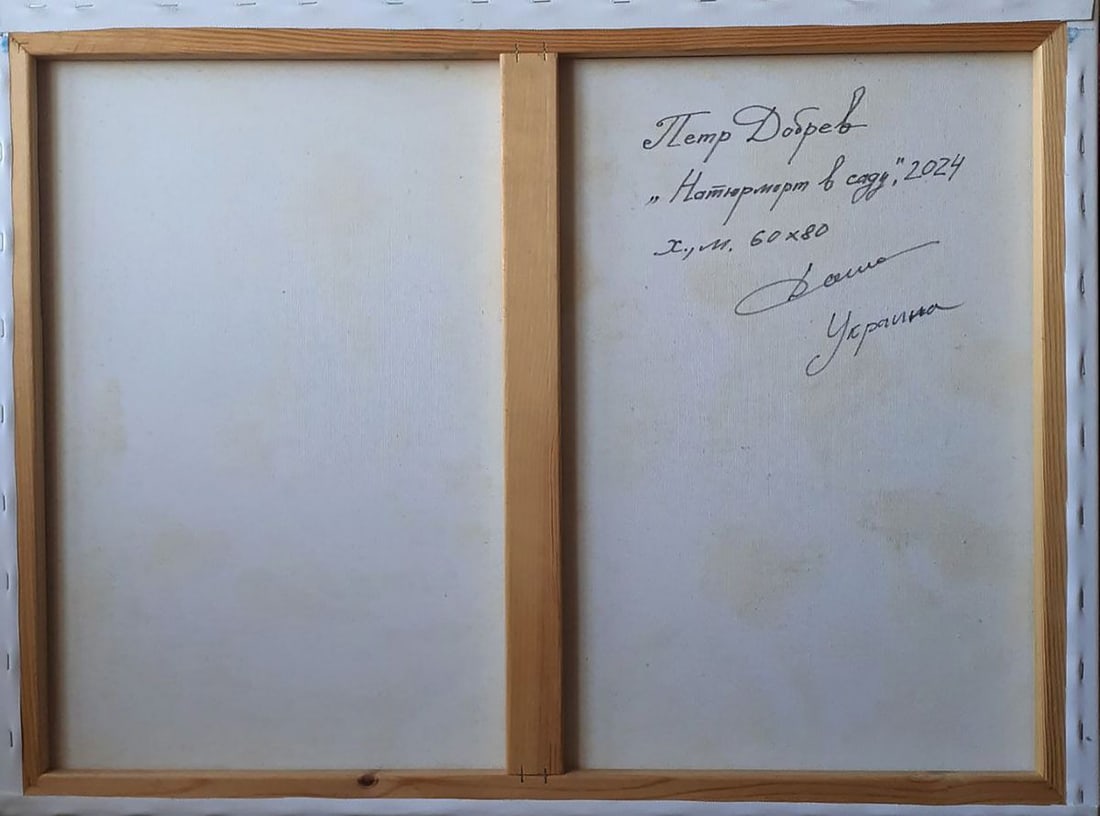 Петр Добрев
„Натюрморт в саду", 2024
х., м. 60х80
Украина